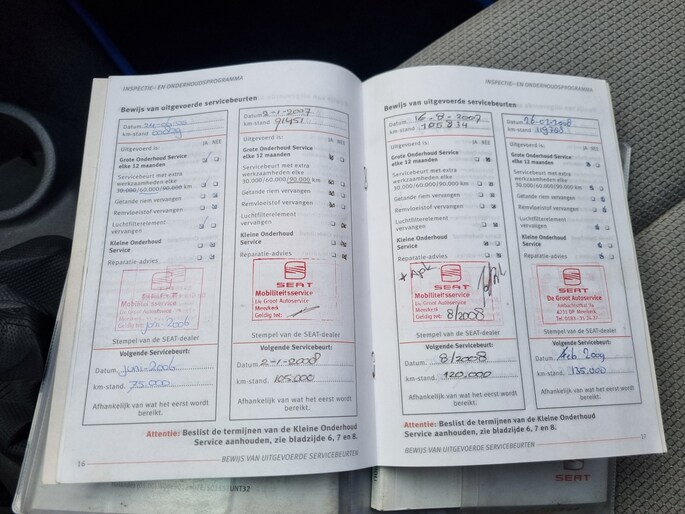 INSPECTIE- EN ONDERHOUDSPROGRAMMA
Bewijs van uitgevoerde servicebeurten
Datum
km-stand
Uitgevoerd is: JA NEE
Grote Onderhoud Service
elke 12 maanden
Servicebeurt met extra
werkzaamheden elke
30.000/60.000/90.000 km
Getande riem vervangen
Remvloeistof vervangen
Luchtfilterelement
vervangen
Kleine Onderhoud
Service
Reparatie-advies
SEAT
Mobiliteitsservice
De Groot Autoservice
Meerkerk
Geldig tot: juni-2006
Stempel van de SEAT-dealer
Volgende Servicebeurt:
Datum juni-2006
km-stand. 75.000
Afhankelijk van wat het eerst wordt
bereikt.
Datum 2-1-2007
km-stand 91451
Uitgevoerd is: JA NEE
Grote Onderhoud Service
elke 12 maanden
Servicebeurt met extra
werkzaamheden elke
30.000/60.000/90.000 km
Getande riem vervangen
Remvloeistof vervangen
Luchtfilterelement
vervangen
Kleine Onderhoud
Service
Reparatie-advies
SEAT
Mobiliteitsservice
De Groot Autoservice
Meerkerk
Geldig tot:
Stempel van de SEAT-dealer
Volgende Servicebeurt:
Datum. 2-1-2008
km-stand. 105.000
Afhankelijk van wat het eerst wordt
bereikt.
Attentie: Beslist de termijnen van de Kleine Onderhoud
Service aanhouden, zie bladzijde 6, 7 en 8.
16 BEWIJS VAN UITGEVOERDE SERVICEBEURTEN
INSPECTIE- EN ONDERHOUDSPROGRAMMA
Bewijs van uitgevoerde servicebeurten
Datum 16-8-2007
km-stand 105834
Uitgevoerd is: JA NEE
Grote Onderhoud Service
elke 12 maanden
Servicebeurt met extra
werkzaamheden elke
30.000/60.000/90.000 km
Getande riem vervangen
Remvloeistof vervangen
Luchtfilterelement
vervangen
Kleine Onderhoud
Service
Reparatie-advies
+ Apk
SEAT
Mobiliteitsservice
De Groot Autoservice
Meerkerk
Geldig tot: 8/2008
Stempel van de SEAT-dealer
Volgende Servicebeurt:
Datum. 8/2008
km-stand. 120.000
Afhankelijk van wat het eerst wordt
bereikt.
Datum
km-stand
Uitgevoerd is: JA NEE
Grote Onderhoud Service
elke 12 maanden
Servicebeurt met extra
werkzaamheden elke
30.000/60.000/90.000 km
Getande riem vervangen
Remvloeistof vervangen
Luchtfilterelement
vervangen
Kleine Onderhoud
Service
Reparatie-advies
SEAT
De Groot Autoservice
4231 Meerkerk
Stempel van de SEAT-dealer
Volgende Servicebeurt:
Datum. feb 2009
km-stand. 135.000
Afhankelijk van wat het eerst wordt
bereikt.
Attentie: Beslist de termijnen van de Kleine Onderhoud
Service aanhouden, zie bladzijde 6, 7 en 8.
BEWIJS VAN UITGEVOERDE SERVICEBEURTEN 17
SEAT